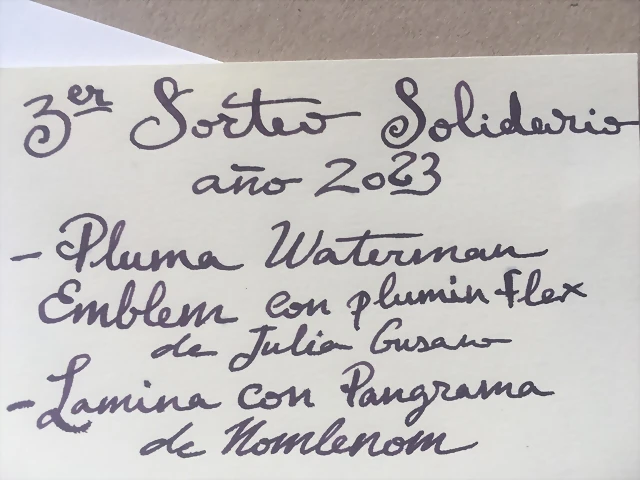 3er Sorteo Solidario
año 2023
- Pluma Waterman
Emblem con plumin flex
de Julia Gusano
- Lamina con Pangrama
de Nomlenom